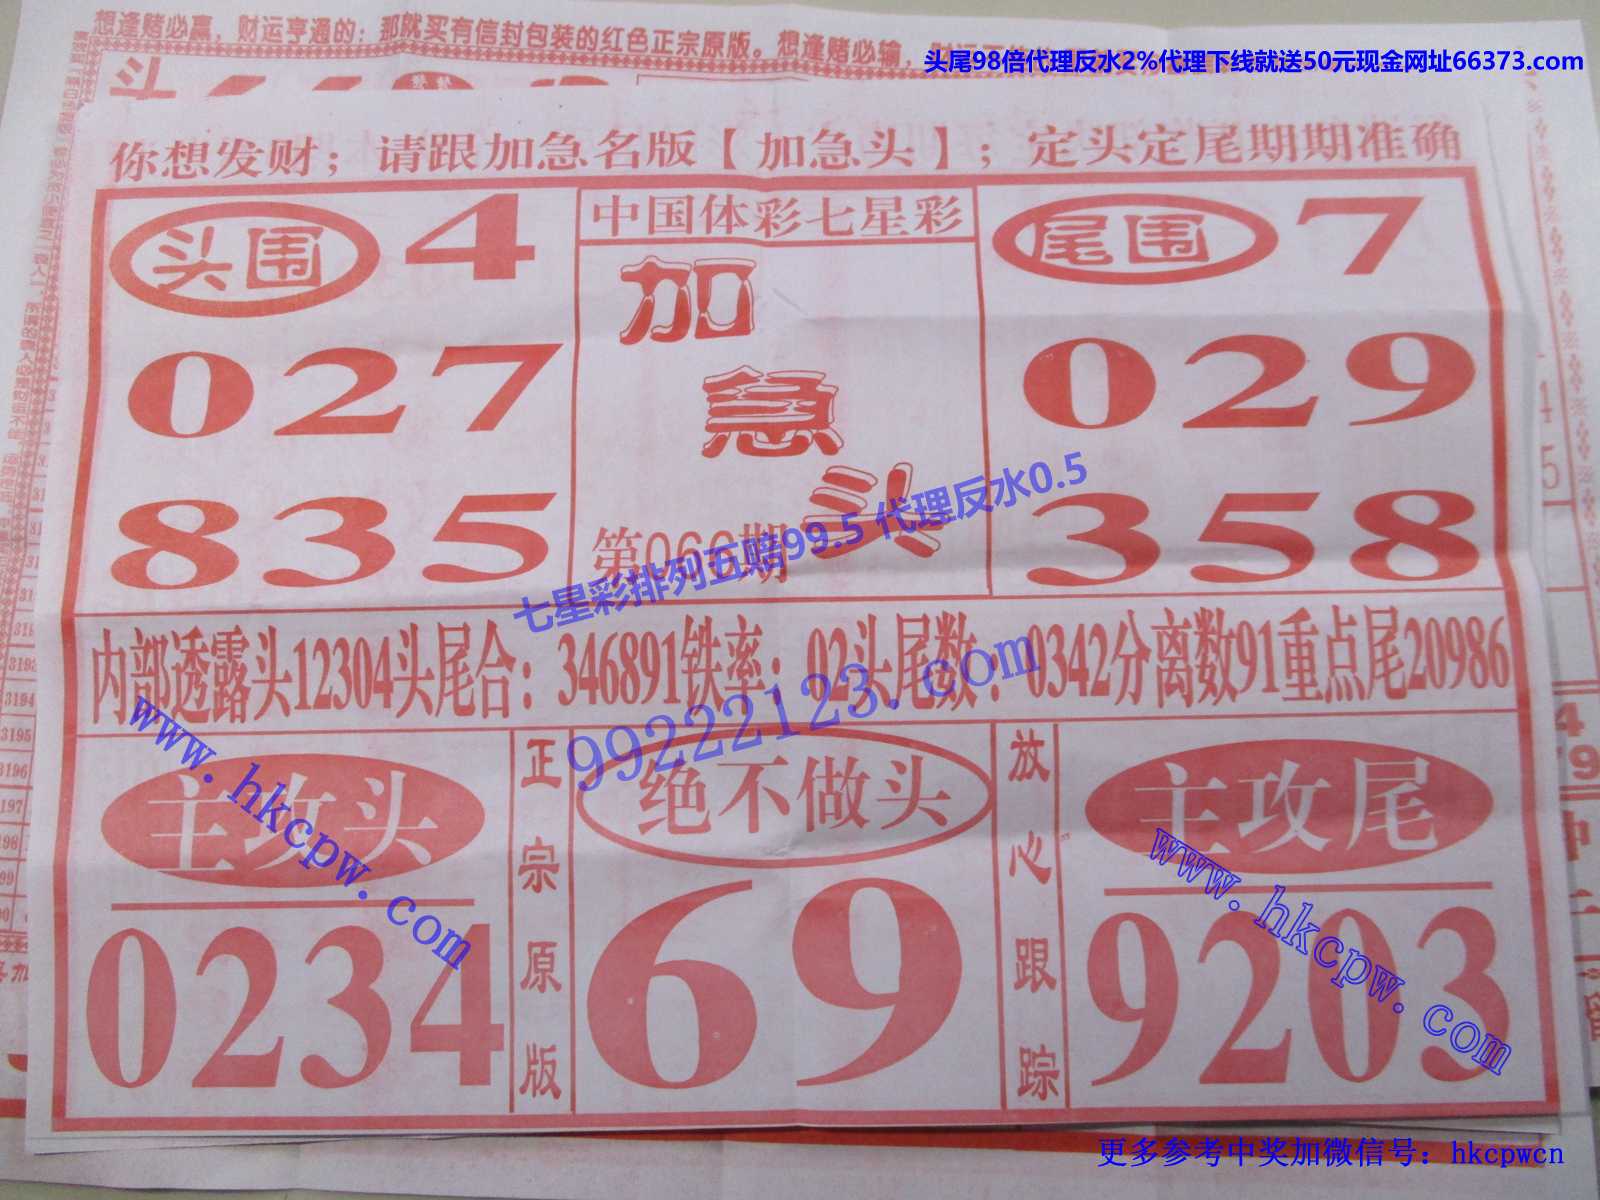 想逢赌必赢，财运亨通的：那就买有信封包装的红色正宗原版。想逢赌必输，
头尾98倍代理反水2%代理下线就送50元现金网址66373.com
你想发财；请跟加急名版【加急头】；定头定尾期期准确
头围 4
027
835
中国体彩七星彩
加急头
第066期
尾围 7
029
358
七星彩排列五赔99.5 代理反水0.5
内部透露头12304头尾合：346891铁率：02头尾数：0342分离数91重点尾20986
99222123.com
www.hkcpw.com
主攻头
0234
正宗原版
绝不做头
69
放心跟踪
主攻尾
9203
www.hkcpw.com
更多参考中奖加微信号：hkcpwcn